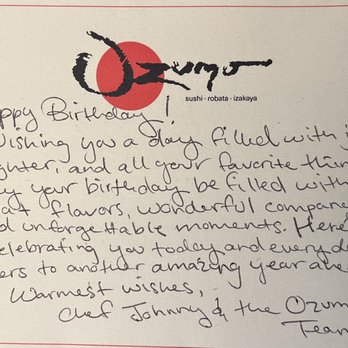 Ozumo
sushi · robata · izakaya
ppy Birthday!
ishing you a day filled with j
ghter, and all your favorite thin
y your birthday be filled with
at flavors, wonderful compan
d unforgettable moments. Here'
elebrating you today and every d
ers to another amazing year ahe
Warmest wishes,
Chef Johnny & the Ozum
Team